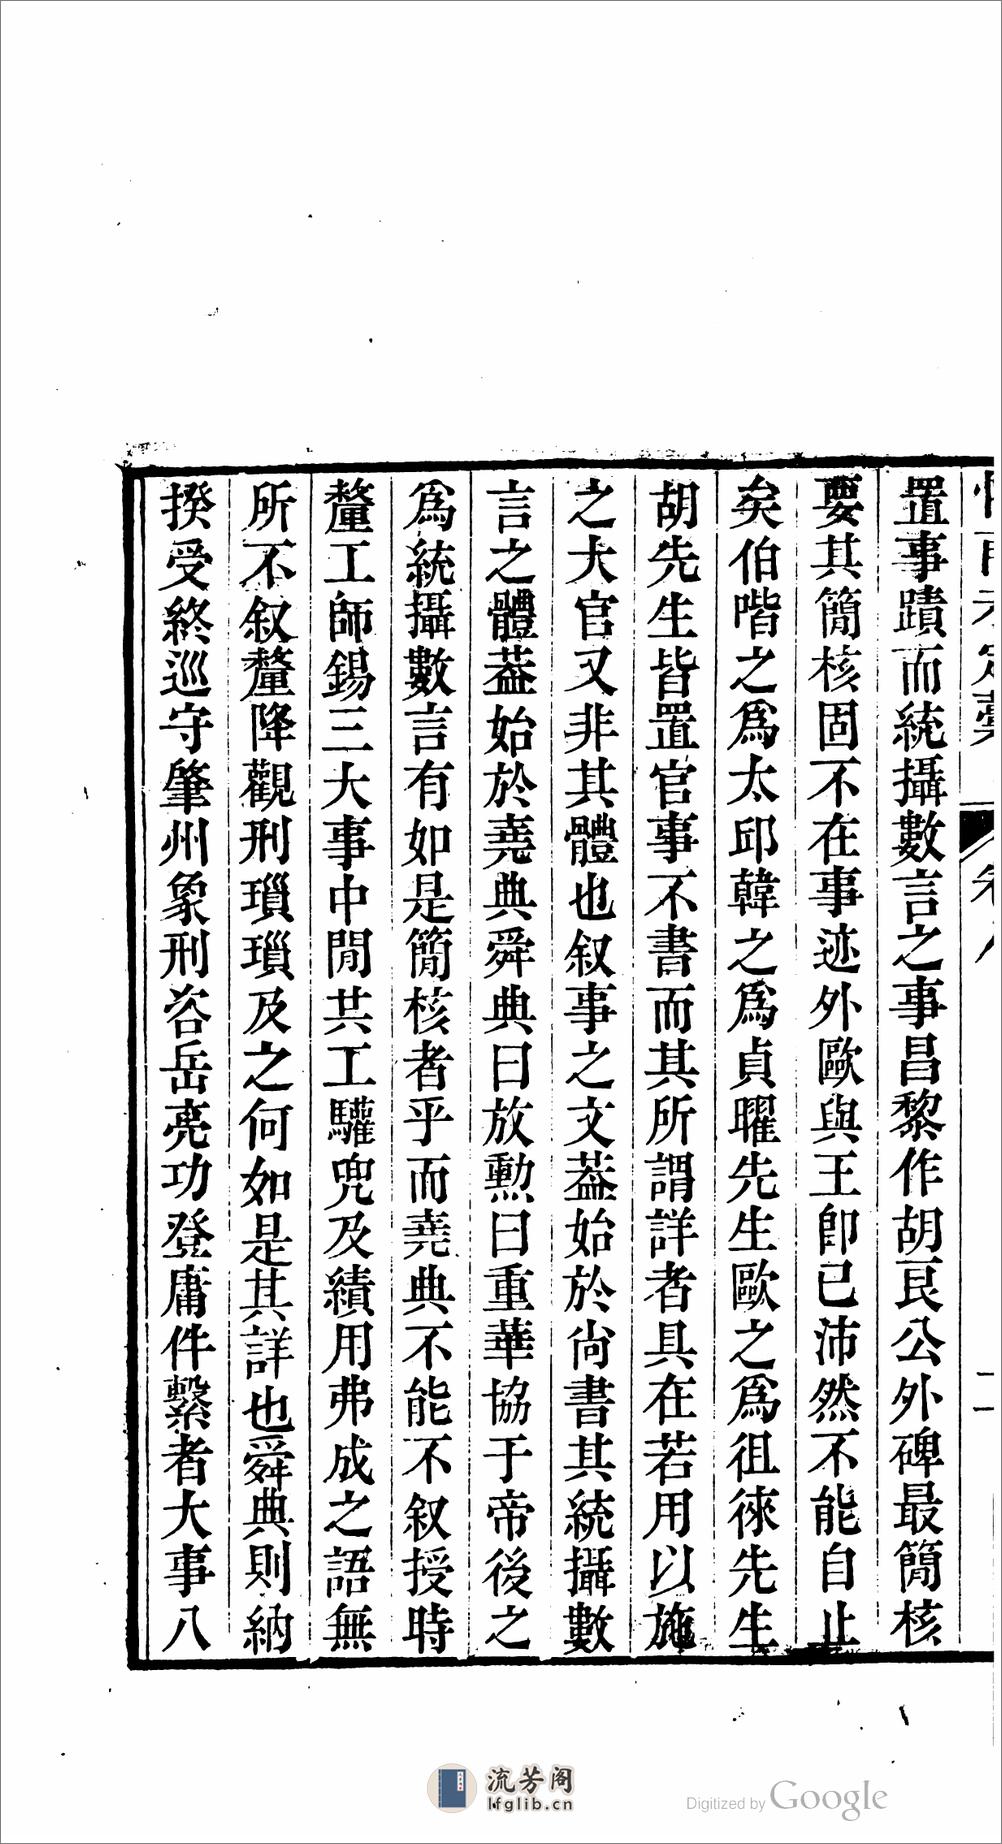 置事蹟而統攝數言之事昌黎作胡良公外碑最簡核
要其簡核固不在事迹外歐與王卽已沛然不能自止
矣伯喈之爲太邱韓之爲貞曜先生歐之爲徂徠先生
胡先生皆置官事不書而其所謂詳者具在若用以施
之大官又非其體也叙事之文葢始於尙書其統攝數
言之體葢始於堯典舜典曰放勳曰重華協于帝後之
爲統攝數言有如是簡核者乎而堯典不能不叙授時
釐工師錫三大事中閒共工驩兜及績用弗成之語無
所不叙釐降觀刑瑣瑣及之何如是其詳也舜典則納
揆受終巡守肇州象刑咨岳亮功登庸件繫者大事八
流芳阁
lfglib.cn
Digitized by Google